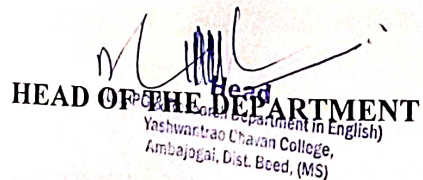 Head
HEAD OF THE DEPARTMENT
Department in English)
Yashwantrao Chavan College,
Ambajogai, Dist. Beed, (MS)